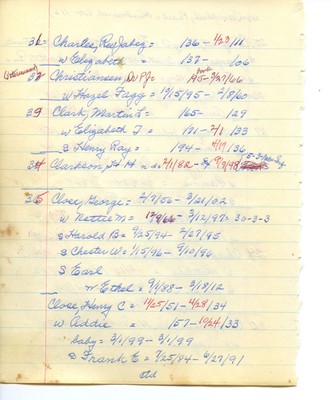 31- Charles, Ray Jabez = 136 - 4/23/11
w Elizabeth " = 137 - 106
32 Christiansen, Dr PJ= 145-3/27/66
w Hazel Fagg = 12/15/95 - 2/8/60
39 Clark, Martin L= 165- 129
w Elizabeth J = 171 - 2/1/33
s Henry Ray = 194 - 4/19/36
34 Clarkson, H H = 2/1/82 - 9/9/98
35 Close, George = 2/7/56 - 3/21/02
w Nettie M = 12/9/66 - 3/12/97= 30-3-3
s Harold B= 9/25/94- 2/27/95
s Chester W= 1/15/96 - 9/10/96
S Earl
w Ethel = 9/1/88 - 3/18/12
Close, Henry C = 11/25/51 - 4/28/34
w Addie = 157 - 10/24/33
baby= 3/1/99 - 3/1/99
s Frank E = 7/25/84 - 6/27/91
old